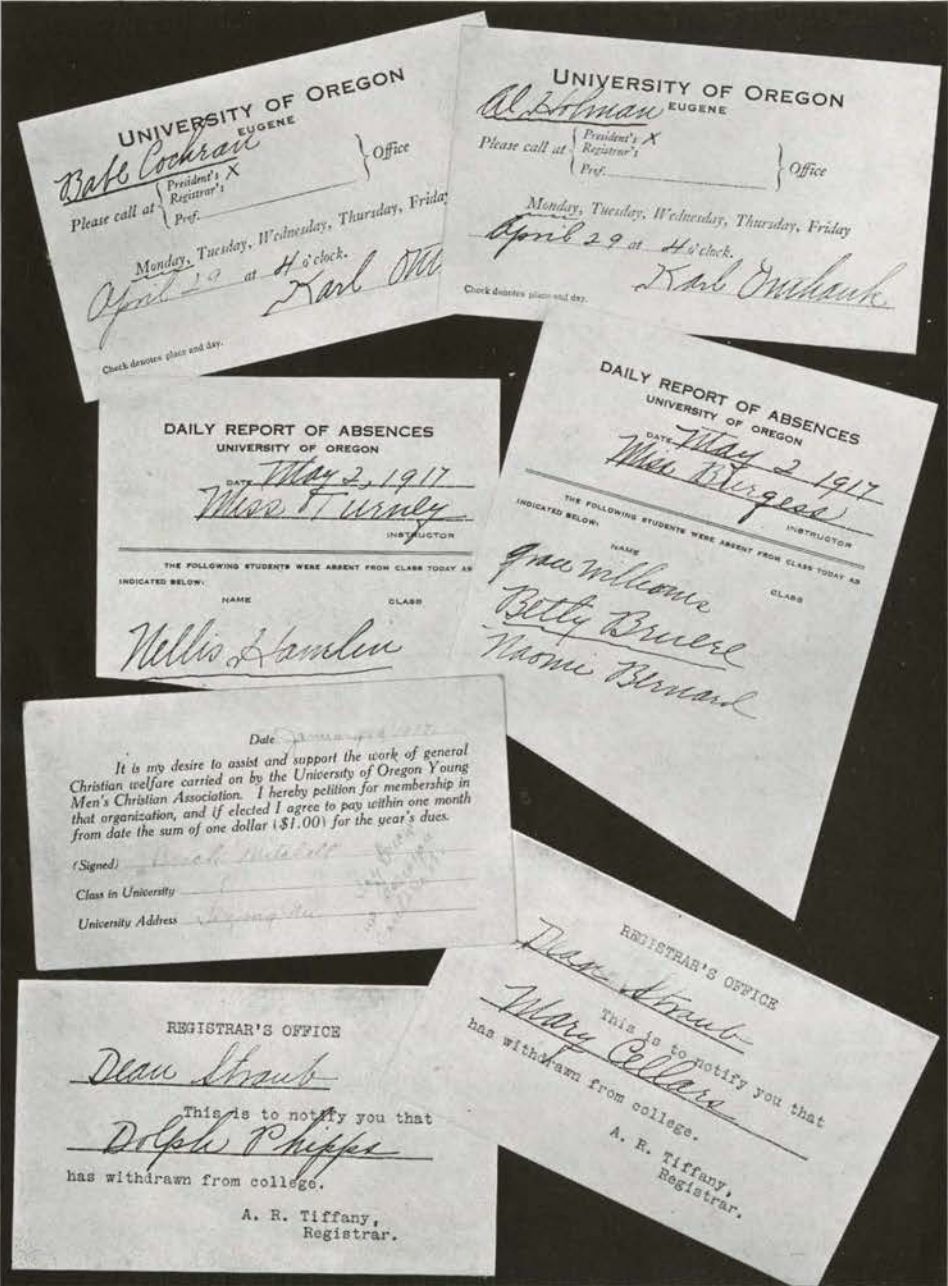 UNIVERSITY OF OREGON
EUGENE
Babe Cochran
Please call at { President's X
Registrar's
Prof. } Office
Monday, Tuesday, Wednesday, Thursday, Friday
April 29 at 4 o'clock.
Karl
Check denotes place and day.
UNIVERSITY OF OREGON
EUGENE
Al Holman
Please call at { President's X
Registrar's
Prof. } Office
Monday, Tuesday, Wednesday, Thursday, Friday
April 29 at 4 o'clock.
Karl Onthank
Check denotes place and day.
DAILY REPORT OF ABSENCES
UNIVERSITY OF OREGON
DATE May 2, 1917
Miss Turney
INSTRUCTOR
THE FOLLOWING STUDENTS WERE ABSENT FROM CLASS TODAY AS
INDICATED BELOW:
NAME CLASS
Nellis Hamlin
DAILY REPORT OF ABSENCES
UNIVERSITY OF OREGON
DATE May 2 1917
Miss Burgess
INSTRUCTOR
THE FOLLOWING STUDENTS WERE ABSENT FROM CLASS TODAY AS
INDICATED BELOW:
NAME CLASS
Grace Williams
Betty Bruere
Naomi Bernard
Date
It is my desire to assist and support the work of general
Christian welfare carried on by the University of Oregon Young
Men's Christian Association. I hereby petition for membership in
that organization, and if elected I agree to pay within one month
from date the sum of one dollar ($1.00) for the year's dues.
(Signed) Mitchell
Class in University
University Address
REGISTRAR'S OFFICE
Dean Straub
This is to notify you that
Mary Cellars
has withdrawn from college.
A. R. Tiffany,
Registrar.
REGISTRAR'S OFFICE
Dean Straub
This is to notify you that
Dolph Phipps
has withdrawn from college.
A. R. Tiffany,
Registrar.